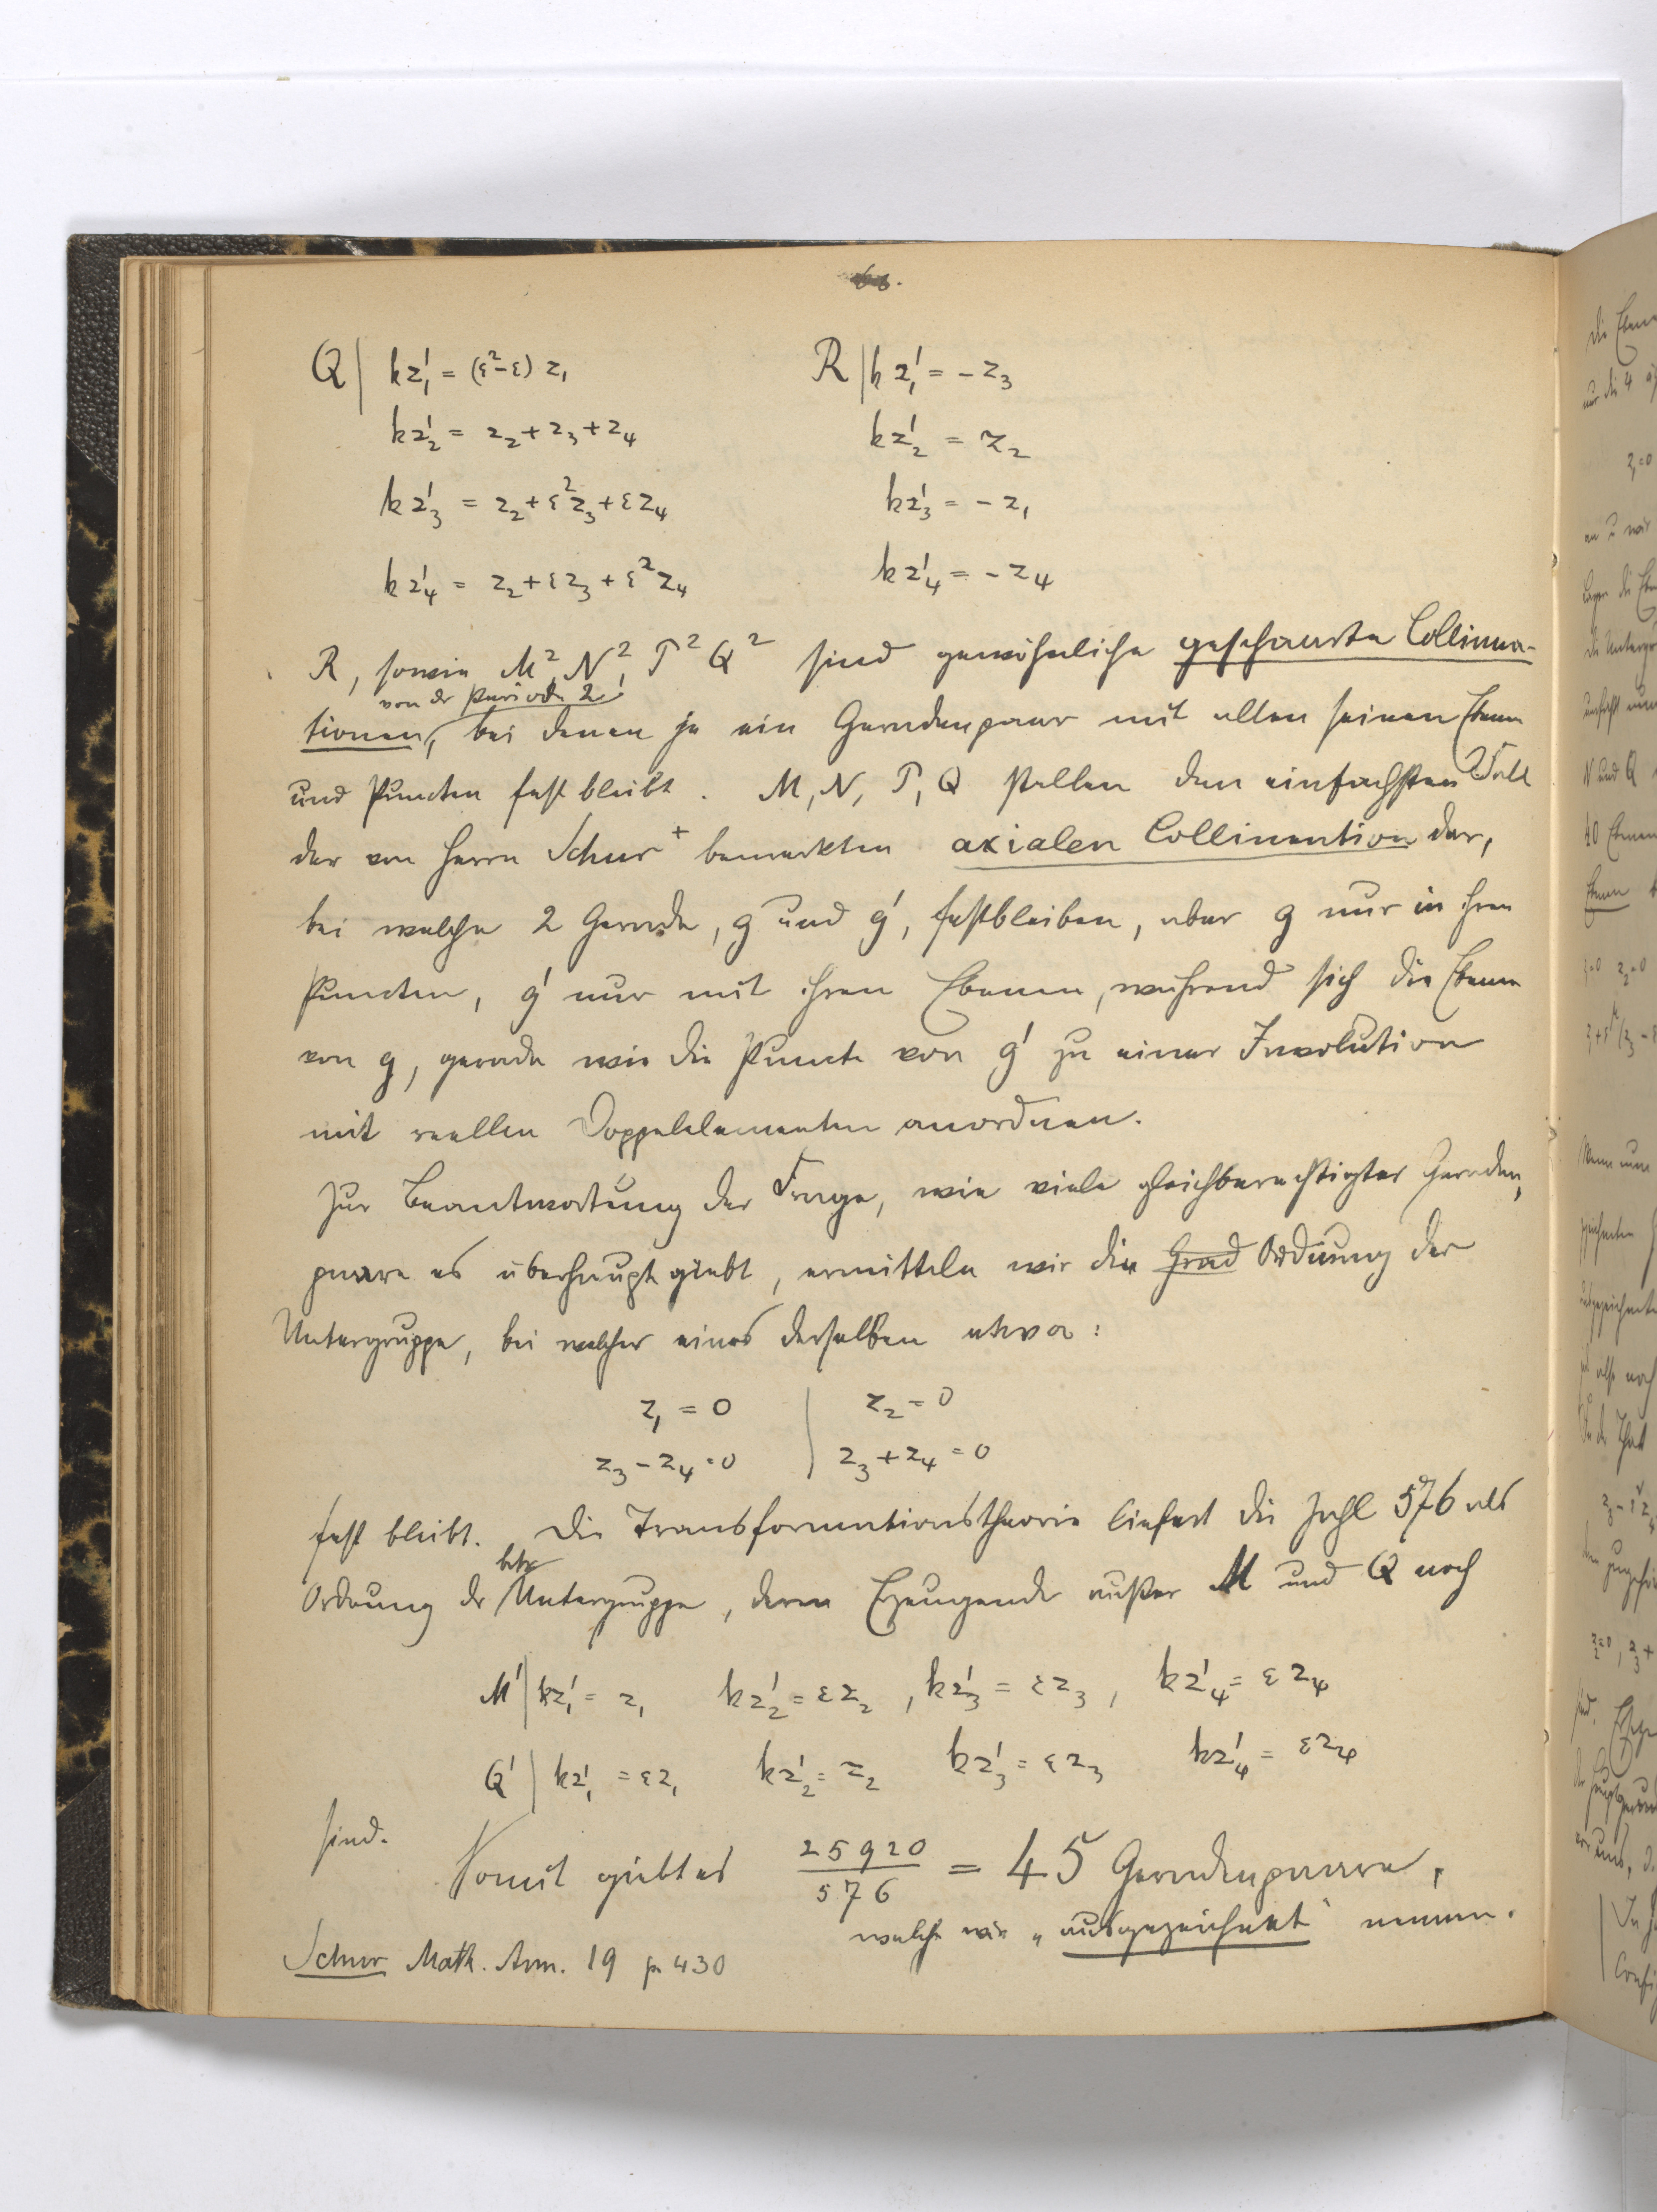 Q | kz₁' = (ε²-ε) z₁    R | k z₁' = - z₃
kz₂' = z₂+z₃+z₄    kz₂' = z₂
kz₃' = z₂+ε²z₃+εz₄    kz₃' = - z₁
kz₄' = z₂+εz₃+ε²z₄    kz₄' = - z₄
R, sowie M², N², T² Q² sind gewöhnliche geschaarte Collinea-
von der Periode 2
tionen, bei denen je ein Geradenpaar mit allen seinen Ebenen
und Puncten fest bleibt. M, N, T, Q stellen den einfachsten Fall
der von Herrn Schur⁺ bemerkten axialen Collineation dar,
bei welcher 2 Gerade, g und g', festbleiben, aber g nur in ihren
Puncten, g' nur mit ihren Ebenen, während sich die Ebenen
von g, gerade wie die Puncte von g' zu einer Involution
mit reellen Doppelelementen anordnen.
Zur Beantwortung der Frage, wie viele gleichberechtigter Geraden,
paare es überhaupt giebt, ermitteln wir die Grad Ordnung der
Untergruppe, bei welcher eines derselben etwa:
z₁ = 0 | z₂ = 0
z₃ - z₄ = 0 | z₃ + z₄ = 0
fest bleibt. Die Transformationstheorie liefert die Zahl 576 als
betr
Ordnung der Untergruppe, deren Erzeugende außer M und Q noch
M' | kz₁' = z₁ kz₂' = εz₂, kz₃' = εz₃, kz₄' = εz₄
Q' | kz₁' = εz₁ kz₂' = z₂ kz₃' = εz₃ kz₄' = εz₄
sind.
Somit giebt es 25920/576 = 45 Geradenpaare,
welche wir „ausgezeichnet“ nennen.
Schur Math. Ann. 19 p 430